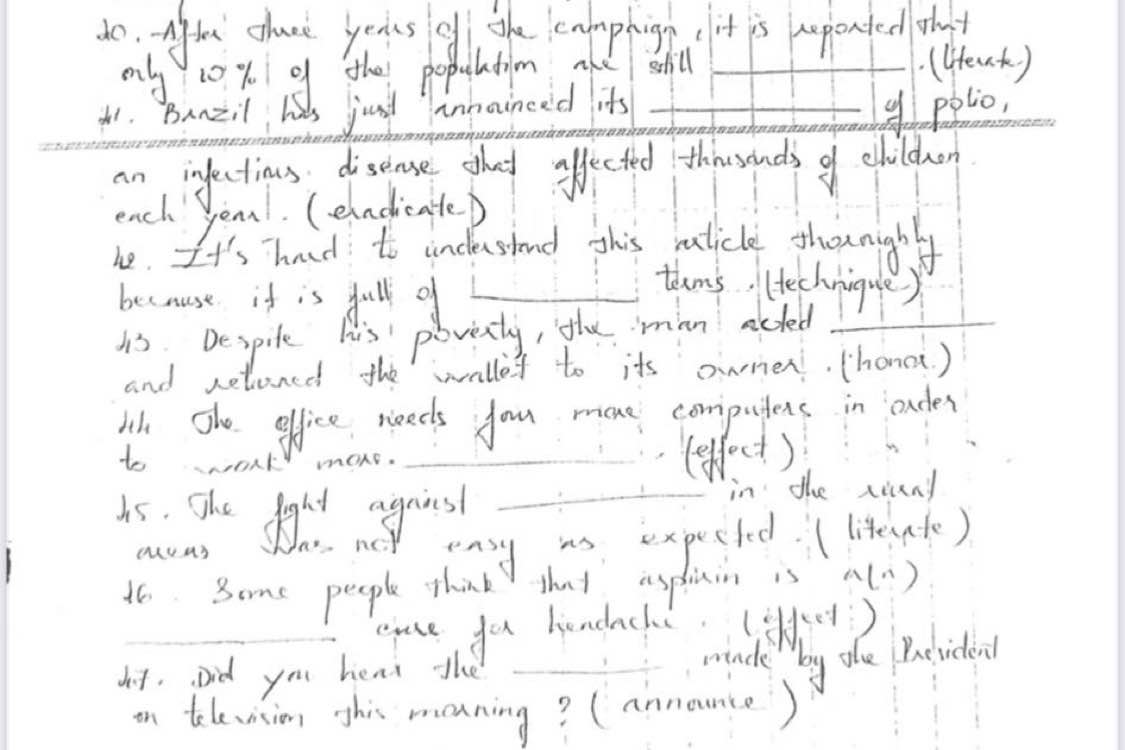 40. After three years of the campaign, it is reported that
only 10 % of the population are still ________ . (literate)
41. Brazil has just announced its ________ of polio,
an infectious disease that affected thousands of children
each year. (eradicate)
42. It's hard to understand this article thoroughly
because it is full of ________ terms. (technique)
43. Despite his poverty, the man acted ________
and returned the wallet to its owner. (honor)
44 The office needs four more computers in order
to work more. ________ . (effect)
45. The fight against ________ in the rural
areas was not easy as expected. (literate)
46. Some people think that aspirin is a(n)
________ cure for headache. (effect)
47. Did you hear the ________ made by the President
on television this morning ? (announce)